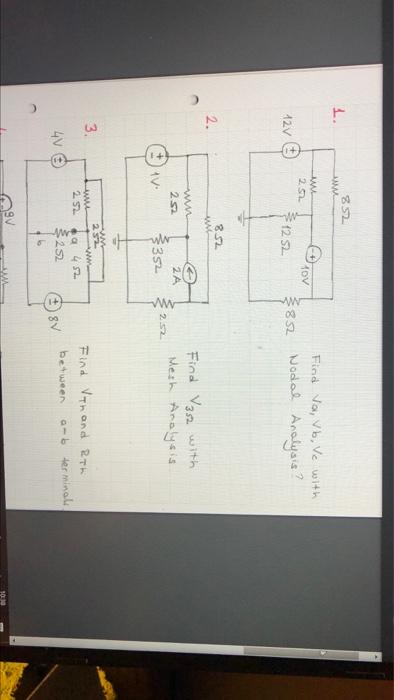 1.
8Ω
12V
2Ω
12Ω
10V
8Ω
Find Va, Vb, Vc with
Nodal Analysis?
2.
8Ω
1V
2Ω
3Ω
2A
2Ω
Find V3Ω with
Mesh Analysis
3.
2Ω
4V
2Ω
a
4Ω
2Ω
b
8V
Find VTh and RTh
between a-b terminals
9V
10:30